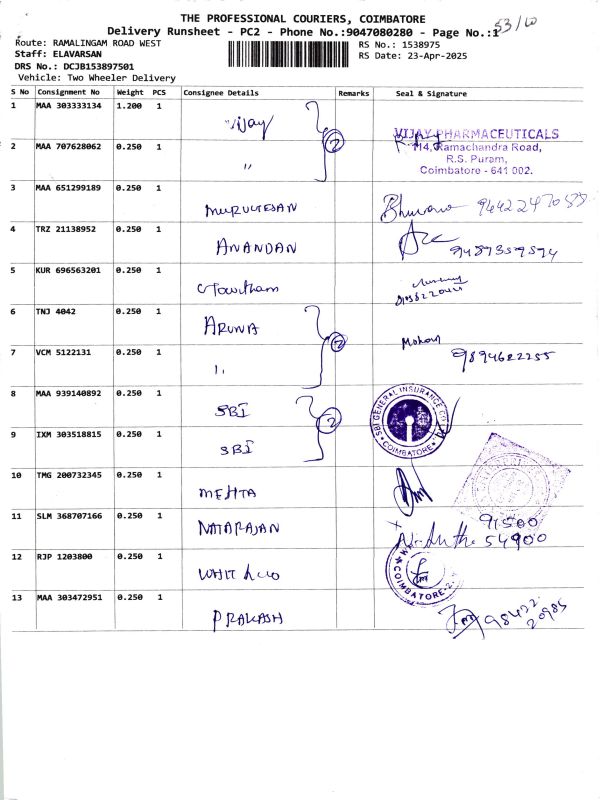 THE PROFESSIONAL COURIERS, COIMBATORE
Delivery Runsheet - PC2 - Phone No.:9047080280 - Page No.:1
53/
Route: RAMALINGAM ROAD WEST
RS No.: 1538975
Staff: ELAVARSAN
RS Date: 23-Apr-2025
DRS No.: DCJB153897501
Vehicle: Two Wheeler Delivery
S No Consignment No Weight PCS Consignee Details Remarks Seal & Signature
1 MAA 303333134 1.200 1 Vijay
VIJAY PHARMACEUTICALS
114, Ramachandra Road,
R.S. Puram,
Coimbatore - 641 002.
2 MAA 707628062 0.250 1 " 2
3 MAA 651299189 0.250 1 MURUGESAN Bhuvana
4 TRZ 21138952 0.250 1 ANANDAN 9487359594
5 KUR 696563201 0.250 1 Gowtham
6 TNJ 4042 0.250 1 ARUNA 2 Mohan
7 VCM 5122131 0.250 1 " 9894622255
8 MAA 939140892 0.250 1 SBI 2
SBI GENERAL INSURANCE CO
COIMBATORE
9 IXM 303518815 0.250 1 SBI
10 TMG 200732345 0.250 1 MEHTA
11 SLM 368707166 0.250 1 NATARAJAN 91500
54900
12 RJP 1203800 0.250 1
COIMBATORE-2
13 MAA 303472951 0.250 1 PRAKASH 98422
20985